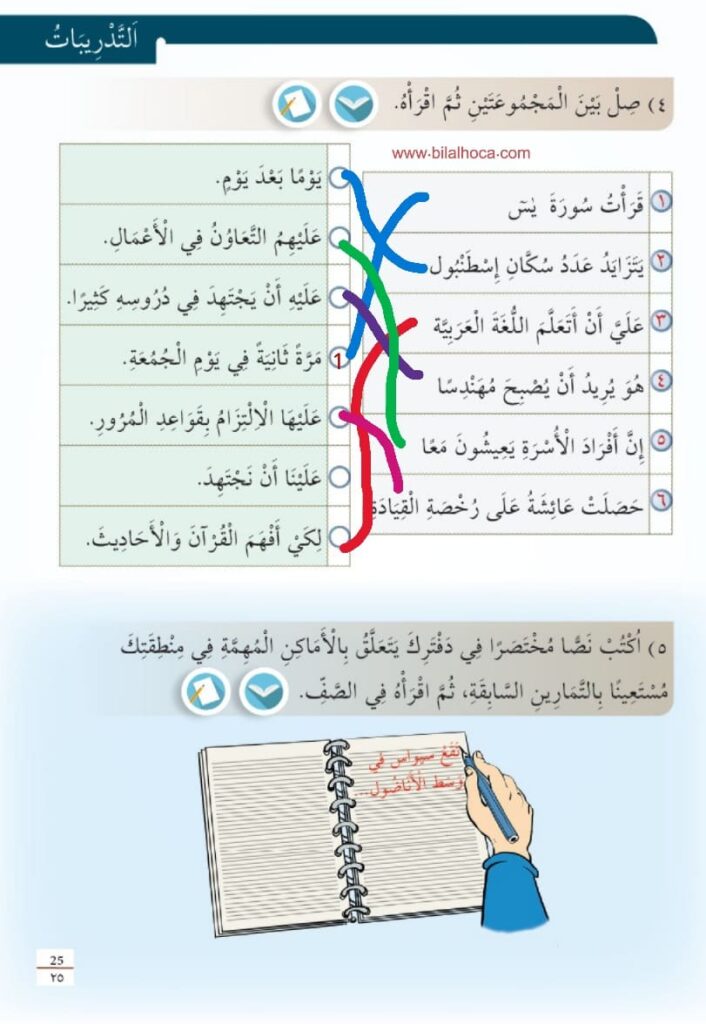 اَلتَّدْرِيبَاتُ
٤) صِلْ بَيْنَ الْمَجْمُوعَتَيْنِ ثُمَّ اقْرَأْهُ.
www.bilalhoca.com
١ قَرَأْتُ سُورَةَ يٰسٓ
٢ يَتَزَايَدُ عَدَدُ سُكَّانِ إِسْطَنْبُول
٣ عَلَيَّ أَنْ أَتَعَلَّمَ اللُّغَةَ الْعَرَبِيَّة
٤ هُوَ يُرِيدُ أَنْ يُصْبِحَ مُهَنْدِسًا
٥ إِنَّ أَفْرَادَ الْأُسْرَةِ يَعِيشُونَ مَعًا
٦ حَصَلَتْ عَائِشَةُ عَلَى رُخْصَةِ الْقِيَادَةِ
يَوْمًا بَعْدَ يَوْمٍ.
عَلَيْهِمُ التَّعَاوُنُ فِي الْأَعْمَالِ.
عَلَيْهِ أَنْ يَجْتَهِدَ فِي دُرُوسِهِ كَثِيرًا.
1 مَرَّةً ثَانِيَةً فِي يَوْمِ الْجُمُعَةِ.
عَلَيْهَا الْاِلْتِزَامُ بِقَوَاعِدِ الْمُرُورِ.
عَلَيْنَا أَنْ نَجْتَهِدَ.
لِكَيْ أَفْهَمَ الْقُرْآنَ وَالْأَحَادِيثَ.
٥) اُكْتُبْ نَصًّا مُخْتَصَرًا فِي دَفْتَرِكَ يَتَعَلَّقُ بِالْأَمَاكِنِ الْمُهِمَّةِ فِي مِنْطِقَتِكَ
مُسْتَعِينًا بِالتَّمَارِينِ السَّابِقَةِ، ثُمَّ اقْرَأْهُ فِي الصَّفِّ.
تَقَعُ سيواس في
وَسَط الأَنَاضُول...
25
٢٥